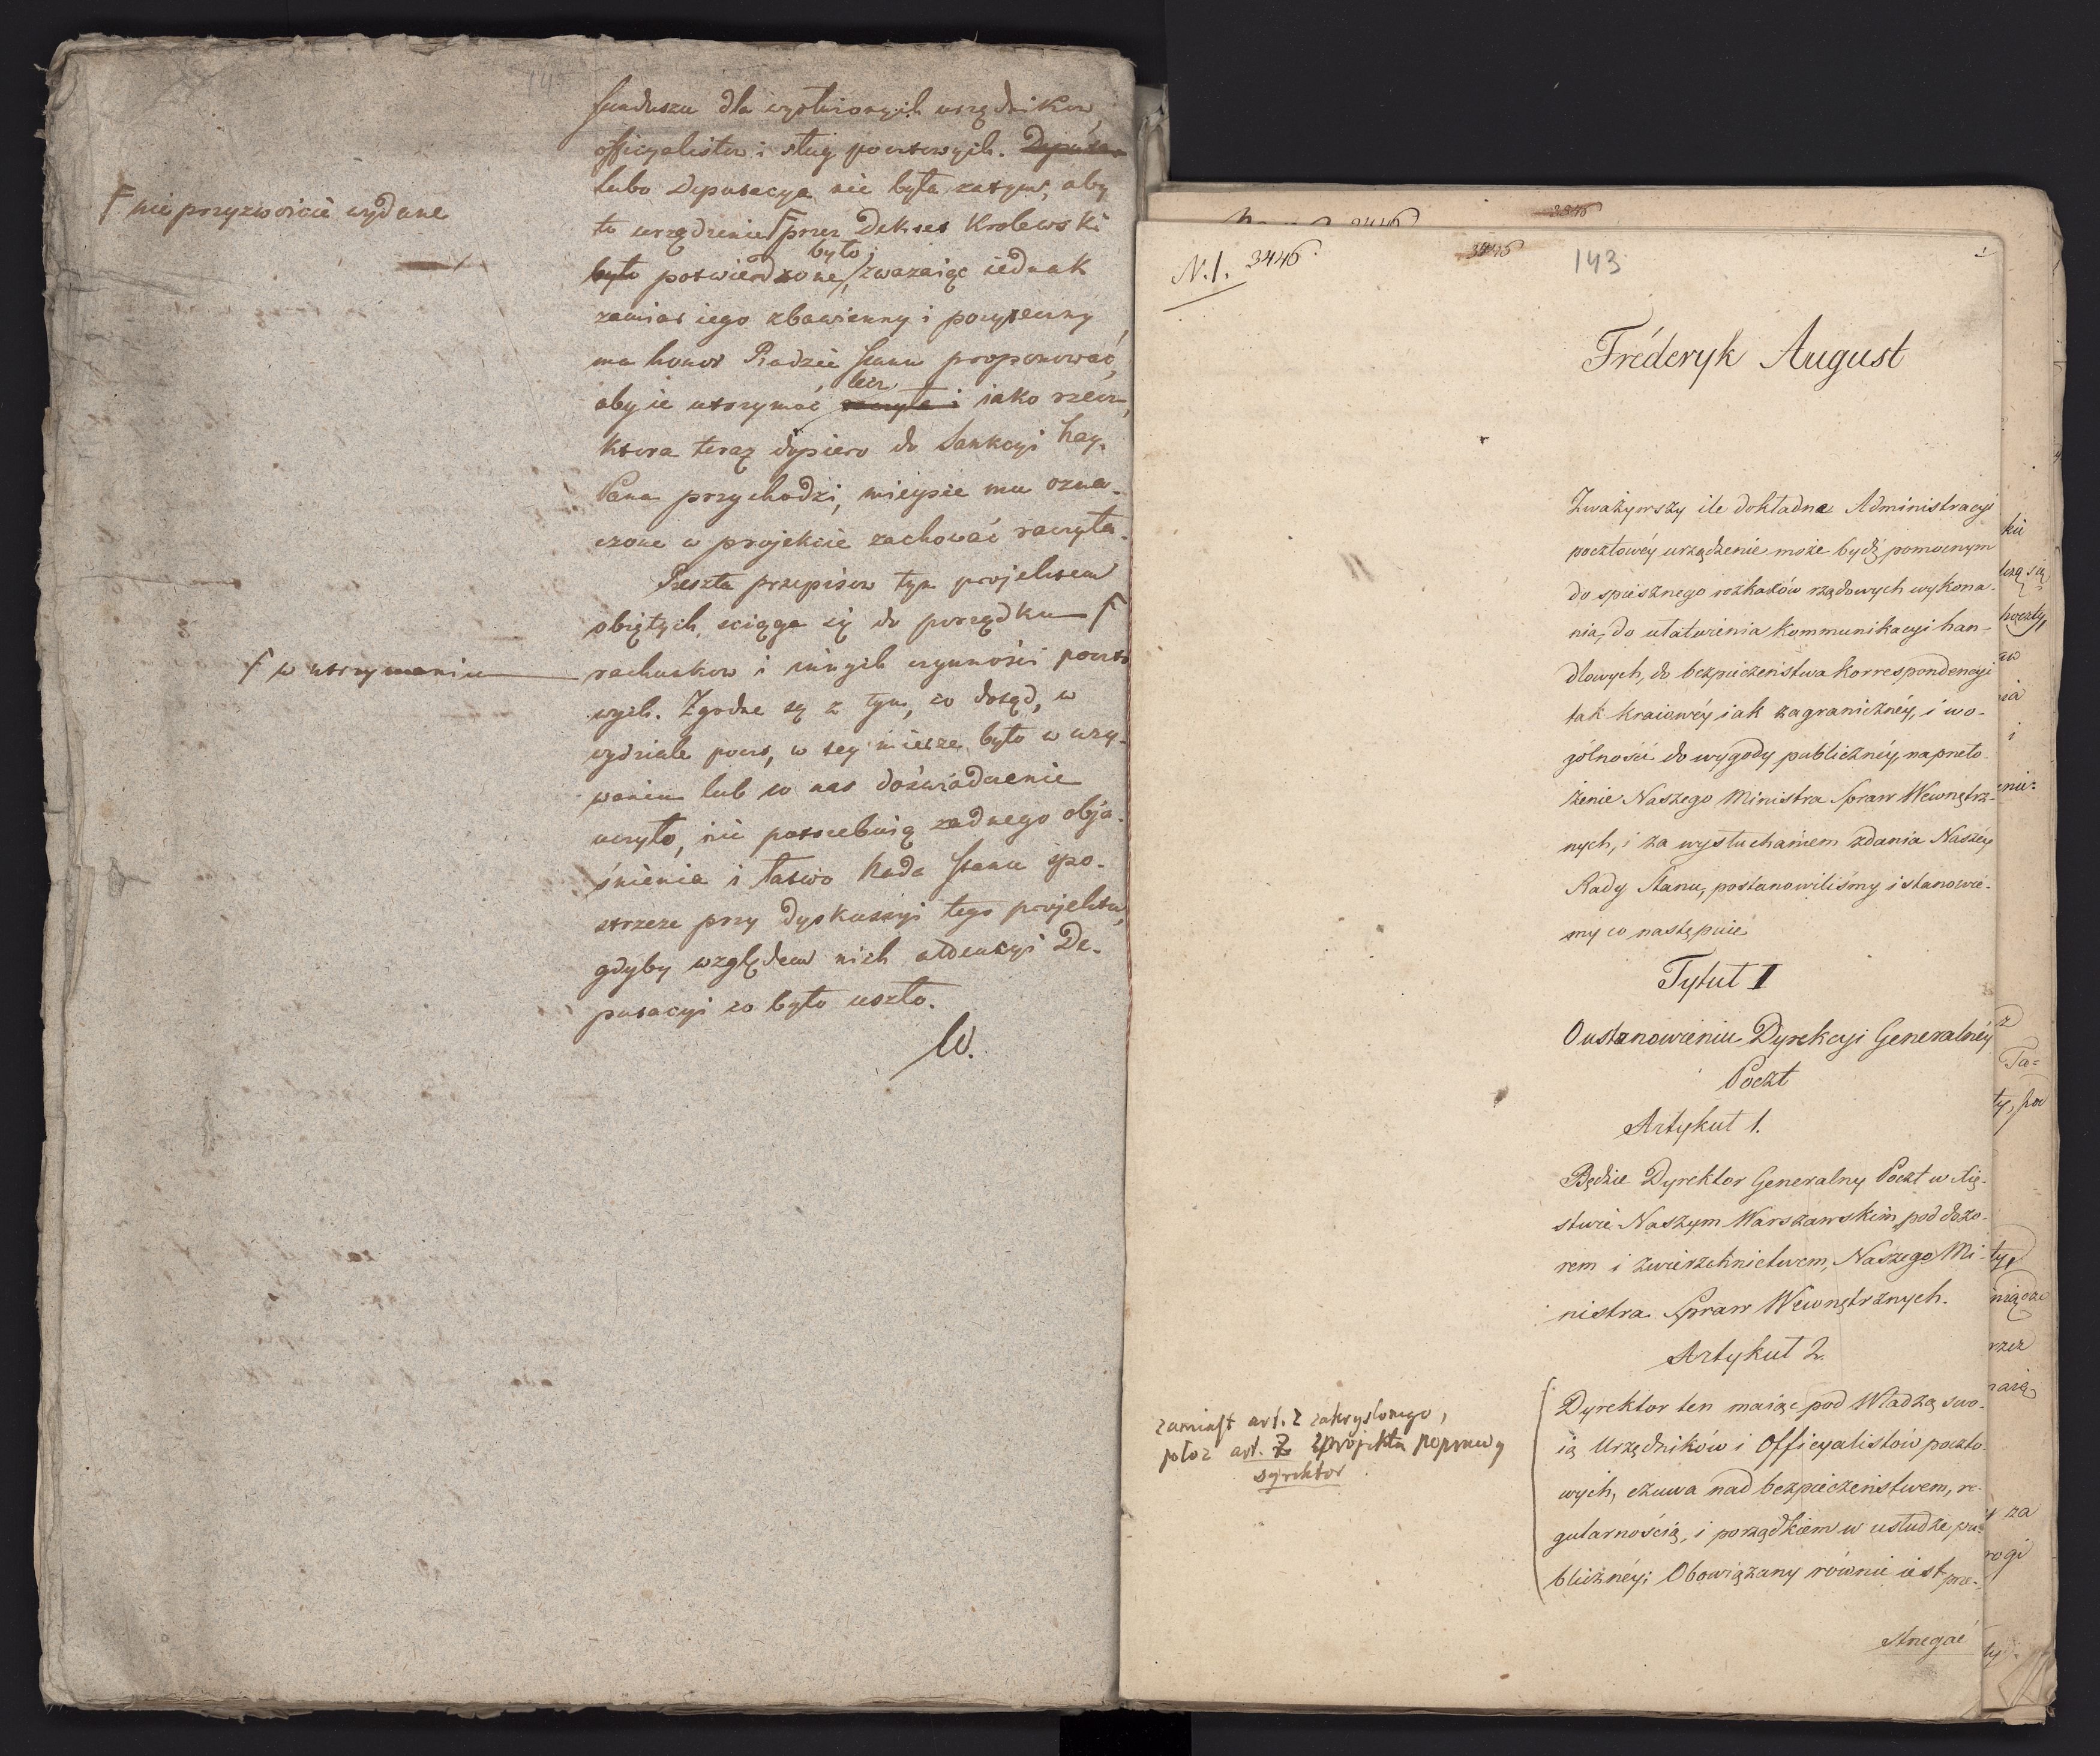 funduszu dla wysłużonych urzędnikow,
officyalistow i sług pocztowych. Deputa-
lubo Deputacya nie była zatym, aby
Ϝ nie przyzwoicie wydane
to urządzenie Ϝ przez Dekret Krolewski
było
było potwierdzone, zwazaiąc iednak
zamiar iego zbawienny i pozyteczny,
ma honor Radzie Stanu proponować,
lecz
aby ie utrzymać i iako rzecz,
ktora teraz dopiero do Sankcyi Nay.
Pana przychodzi, mieysce mu ozna-
czone w projekcie zachować raczyła.
Reszta przepisow tym projektem
obiętych, sciąga się do porządku Ϝ
Ϝ w utrzymaniu
rachunkow i innych czynności poczto
wych. Zgodne są z tym, co dotąd, w
wydziale poczt, w tey mierze było w uzy-
waniu lub co nas doświadczenie
uczyło, nie potrzebuią zadnego obja-
śnienia i łatwo Rada Stanu spo-
strzeze przy dyskussyi tego projektu,
gdyby względem nich attencyi De-
putacyi co było uszło.
W.
N. 1. 3446
3446
143
Fréderyk August
Zważywszy ile dokładne Administracyi
pocztowéy urządzenie może bydź pomocnym
do spiesznego rozkazów rządowych wykona-
nia, do ułatwienia kommunikacyi han-
dlowych, do bezpieczeństwa korrespondencyi
tak kraiowéy iak zagranicznéy, i wo-
gólności do wygody publicznéy, na przeło-
żenie Naszego Ministra Spraw Wewnętrz-
nych, i za wysłuchaniem zdania Naszéy
Rady Stanu, postanowiliśmy i stanowie-
my co następuie
Tytuł I
O ustanowieniu Dyrekcyi Generalnéy
Poczt
Artykuł 1.
Będzie Dyrektor Generalny Poczt w Xię-
stwie Naszym Warszawskim pod dozo-
rem i zwierzchnictwem, Naszego Mi-
nistra Spraw Wewnętrznych.
Artykuł 2.
Dyrektor ten maiąc pod Władzą swo-
ią Urzędników i Officyalistów poczto-
wych, czuwa nad bezpieczeństwem, re-
gularnością, i porządkiem w usłudze pu-
blicznéy; Obowiązany równie iest prze-
strzegać
zamiast art. 2 zakryslonego,
połoz art. 2 z projektu poprawy
dyrektor